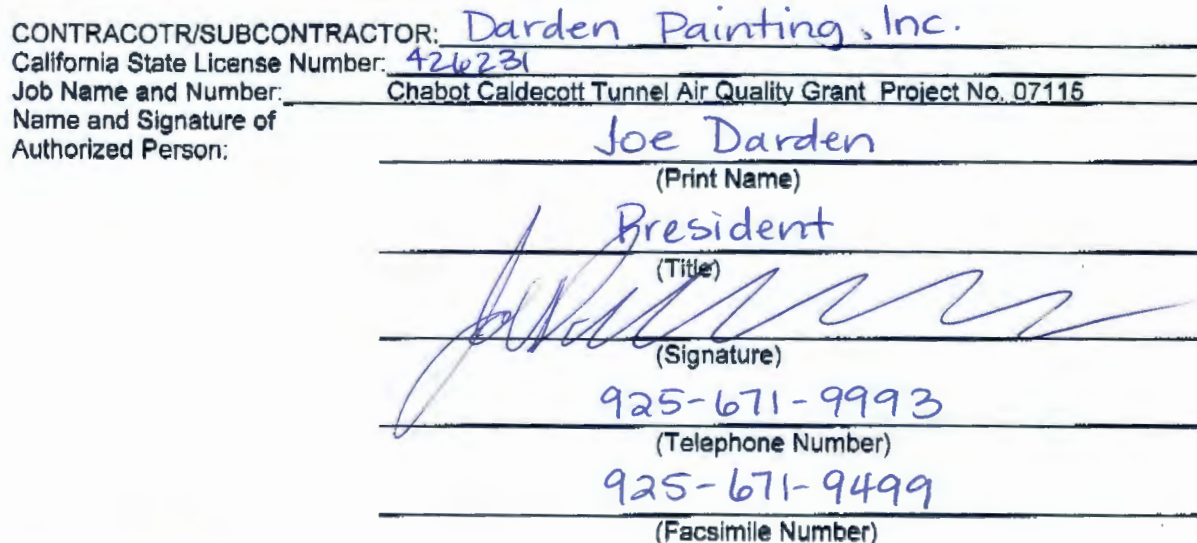 CONTRACOTR/SUBCONTRACTOR: Darden Painting, Inc.
California State License Number: 426231
Job Name and Number: Chabot Caldecott Tunnel Air Quality Grant Project No. 07115
Name and Signature of
Authorized Person: Joe Darden
(Print Name)
President
(Title)
(Signature)
925-671-9993
(Telephone Number)
925-671-9499
(Facsimile Number)